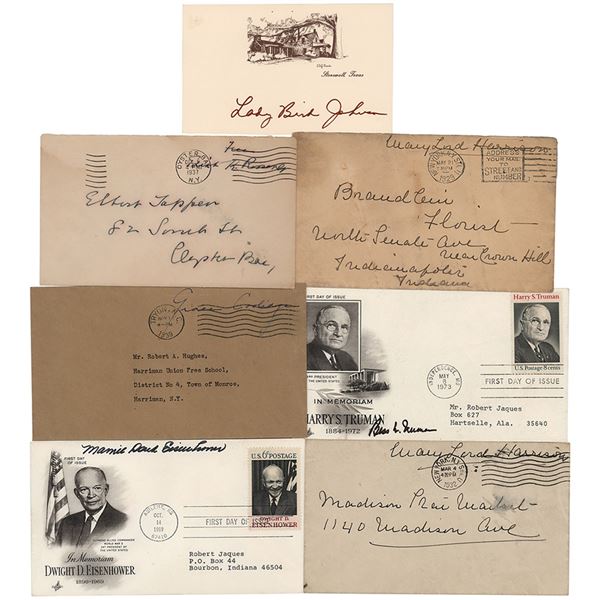 Stonewall, Texas
Lady Bird Johnson
OYSTER BAY
1937
N.Y.
Free
Elbert Tappen
82 South St
Oyster Bay,
Mary Lord Harrison
MAY 21
1929
ADDRESS
YOUR MAIL
TO
STREET AND
NUMBER
Brandlein
Florist
North Senate Ave
near Crown Hill
Indianapolis
Indiana
TRYON, N.C.
1939
Grace Coolidge
Mr. Robert A. Hughes,
Harriman Union Free School,
District No 4, Town of Monroe,
Harriman, N.Y.
FIRST DAY OF ISSUE
THE UNITED STATES
IN MEMORIAM
HARRY S. TRUMAN
1884-1972
Bess W. Truman
INDEPENDENCE, MO
MAY
8
1973
Harry S. Truman
U.S. Postage 8 cents
FIRST DAY OF ISSUE
Mr. Robert Jaques
Box 627
Hartselle, Ala. 35640
Mamie Doud Eisenhower
FIRST DAY
OF ISSUE
SUPREME ALLIED COMMANDER
WORLD WAR II
34th PRESIDENT OF
THE UNITED STATES
In Memoriam
DWIGHT D. EISENHOWER
1890-1969
ABILENE, KS
OCT
14
1969
67410
U.S. 6c POSTAGE
DWIGHT D.
EISENHOWER
FIRST DAY OF ISSUE
Robert Jaques
P.O. Box 44
Bourbon, Indiana 46504
Mary Lord Harrison
NEW YORK, N.Y.
MAR 4
1932
Madison Ave
1140 Madison Ave